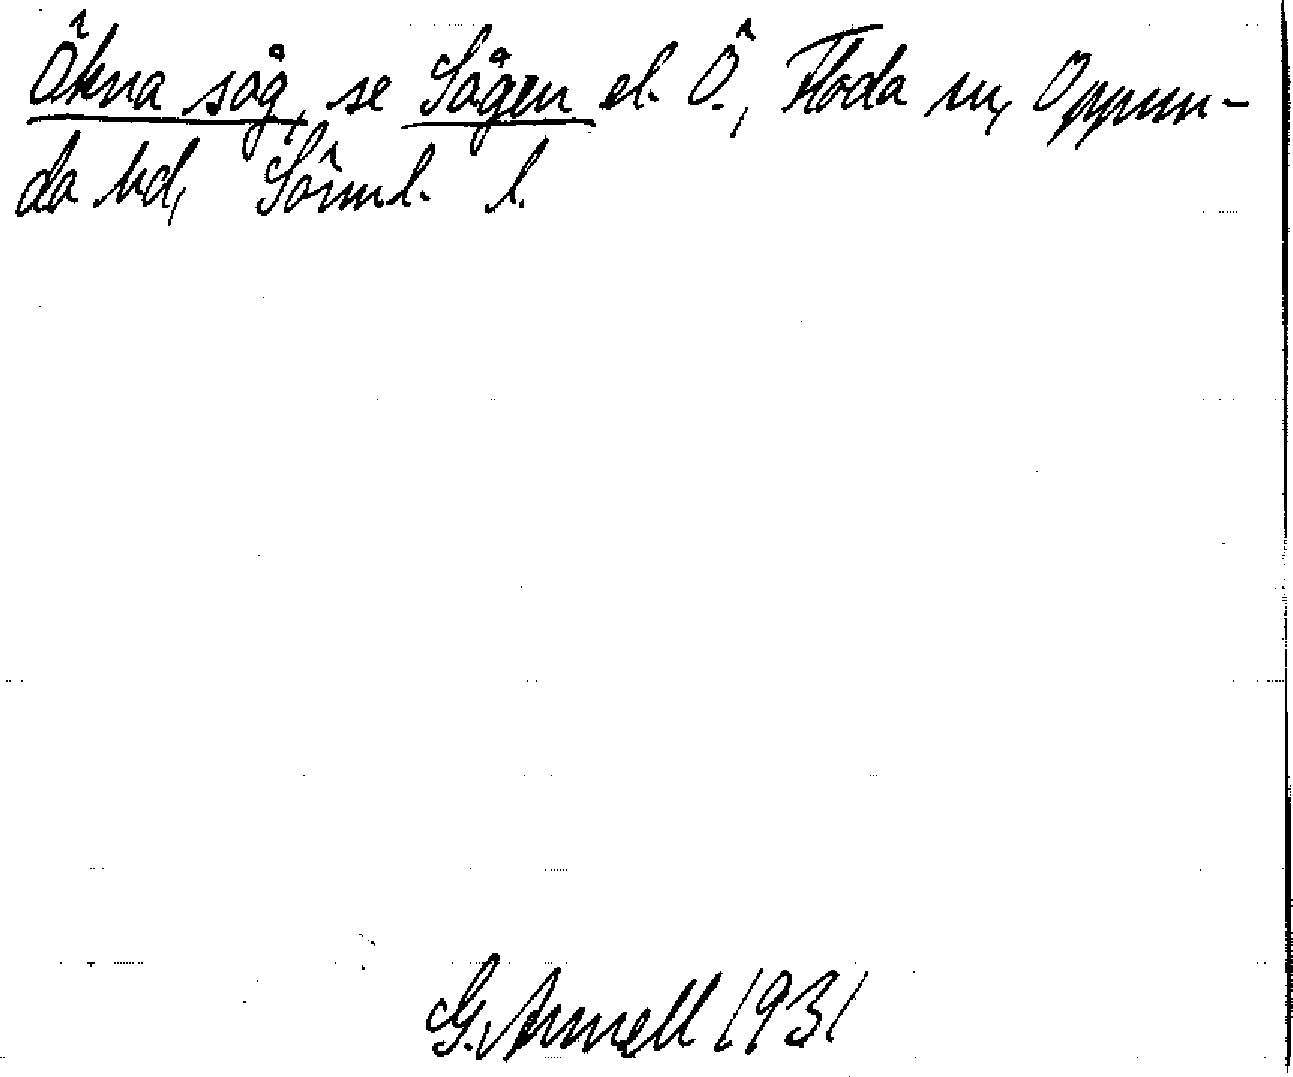 Ökna såg, se Sågen el. Ö., Floda sn, Oppun-
da hd, Sörml. l.
G. Armell 1931